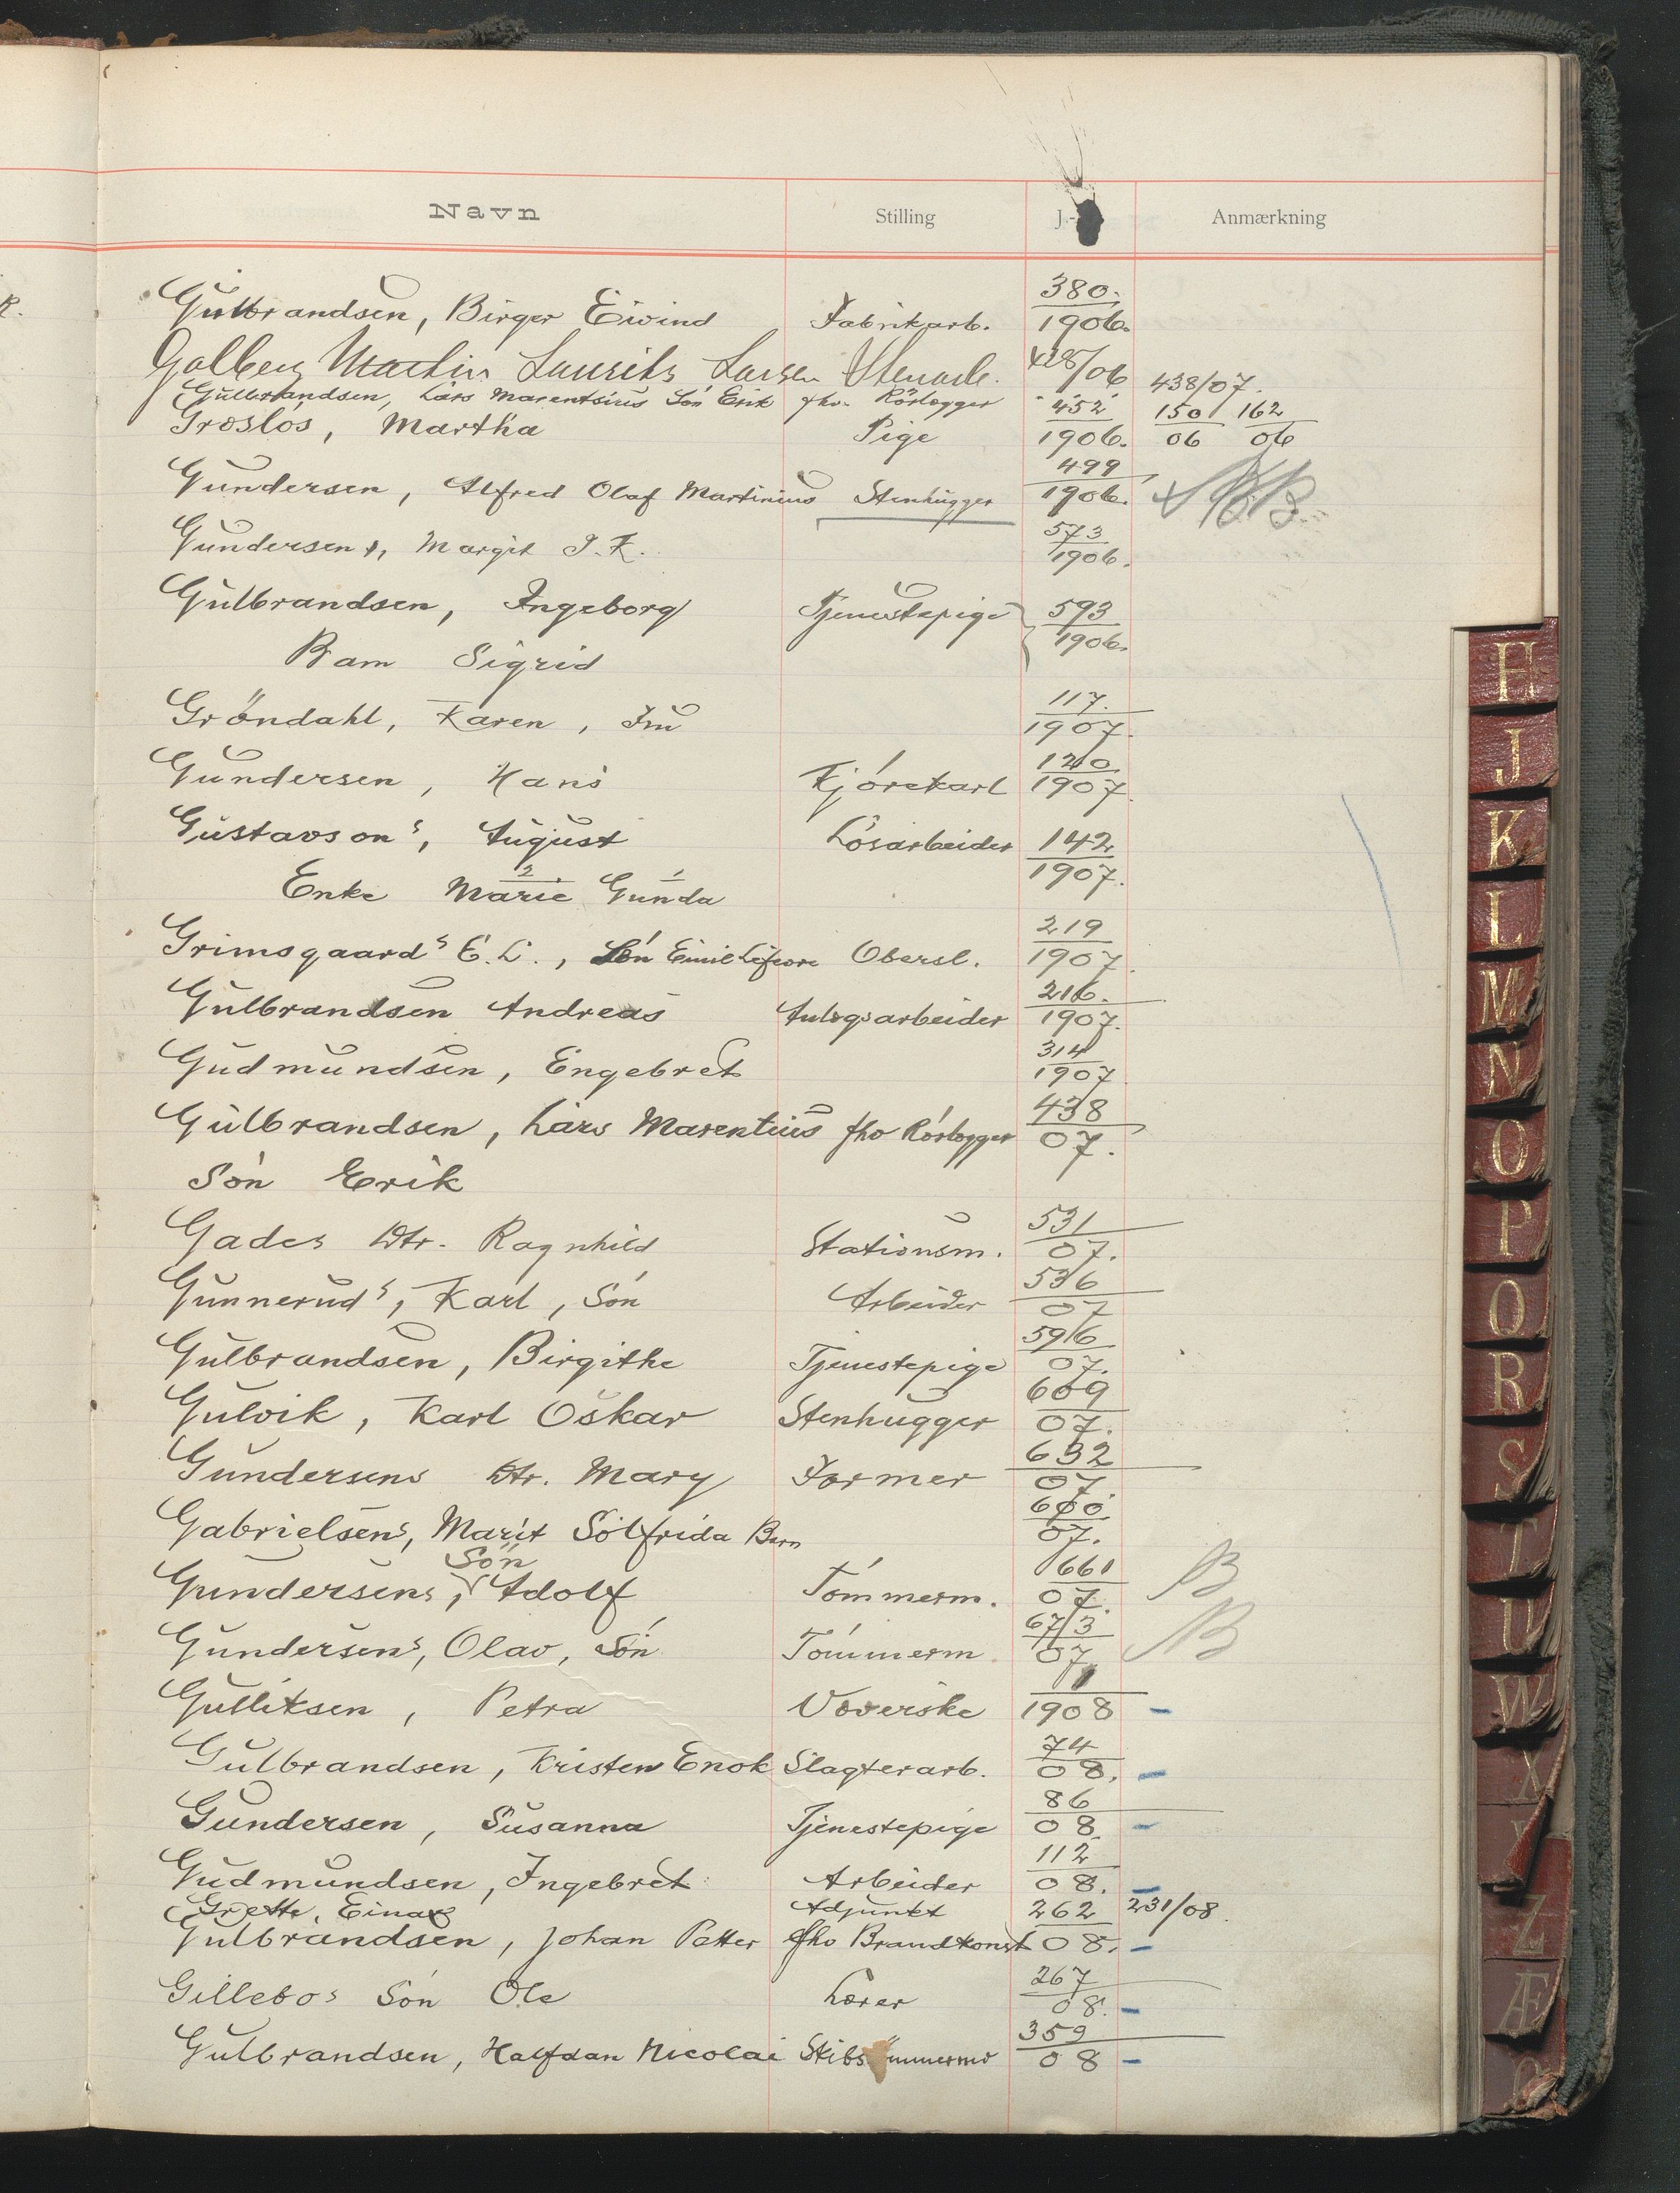 Navn Stilling J.- Anmærkning
Gulbrandsen, Birger Eivind Fabrikarb. 380 1906.
Golberg Martin Laurits Larsen Stenarb. 428/06
Gulbrandsen, Lars Marentsius Søn Erik fhv. Rörlægger 438/07.
Grøslös, Martha Pige 452 1906. 150/06 162/06
Gundersen, Alfred Olaf Martinius Stenhugger 499 1906.
Gundersen, Margit J. K. 573 1906.
Gulbrandsen, Ingeborg Tjenestepige 593 1906.
Barn Sigrid
Gröndahl, Karen, Fru 117 1907.
Gundersen, Hans Kjórekarl 120 1907.
Gustavson's, August Lösarbeider 142 1907.
Enke Marie Gunda
Grimsgaard's E. L., Sön Emil Obersl. 219 1907.
Gulbrandsen Andreas Anlægsarbeider 216. 1907.
Gudmundsen, Engebret 314 1907
Gulbrandsen, Lars Marentius fhv Rórlægger 438 07.
Són Erik
Gades Dtr. Ragnhild Stationsm. 531 07.
Gunnerud's, Karl, Són Arbeider 536 07
Gulbrandsen, Birgithe Tjenestepige 596 07.
Gulvik, Karl Oskar Stenhugger 609 07.
Gundersens Dtr. Mary Former 632 07.
Gabrielsens, Marit Solfrida Barn 600 07.
Sön
Gundersens, Adolf Tómmerm. 661 07. B
Gundersens, Olav, Són Tómmerm 673 07 NB
Gulliksen, Petra Væverske 1 1908 -
Gulbrandsen, Kristen Enok Slagterarb. 74 08. -
Gundersen, Susanna Tjenestepige 86 08. -
Gudmundsen, Ingebret Arbeider 112 08. -
Grette, Einar Adjunkt 231/08.
Gulbrandsen, Johan Petter fhv Brandkonst 262 08. -
Gillebo's Són Ole Lærer 267 08. -
Gulbrandsen, Halfdan Nicolai 359 08 -
H
J
K
L
M
N
O
P
Q
R
S
T
U
W
X
Z
Æ